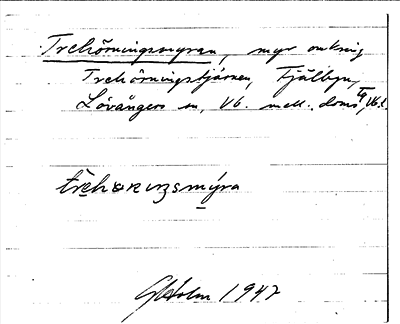 Trehörningsmyran, myr omkring
Trehörningstjärnen, Fjälbyn,
Lövångers sn, Vb. mell. doms tg, Vb.l.
trehornɪŋsmýra
G Holm 1947